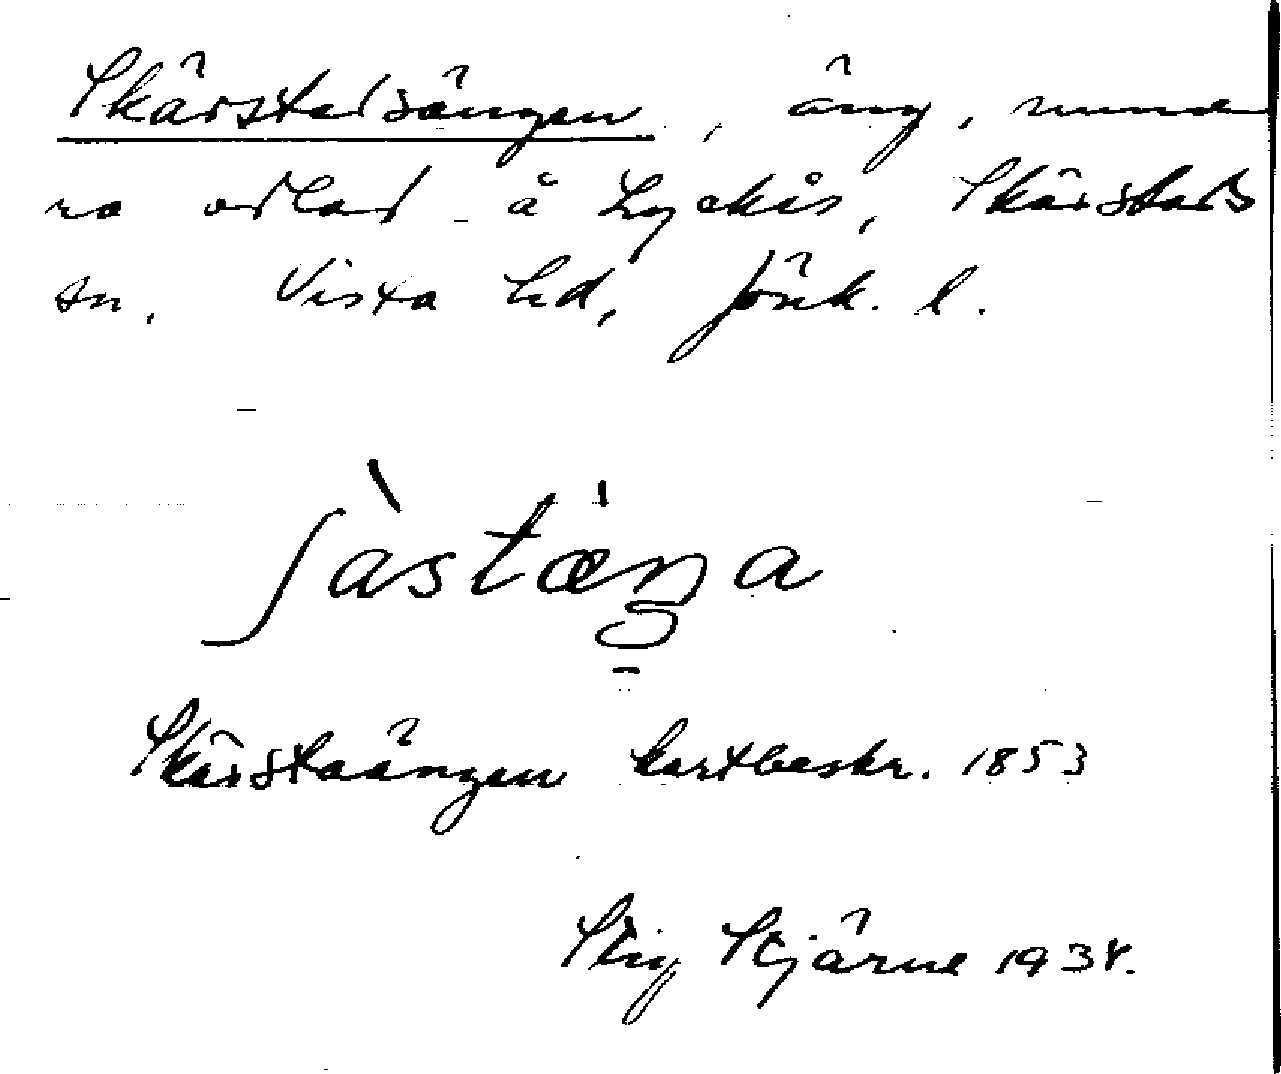 Skärstadsängen, äng, nume
ra odlad å Lyckås, Skärstads
sn. Vista hd, Jönk. l.
ʃàstæŋa
Skärstaängen kartbeskr. 1853
Stig Stjärne 1934.